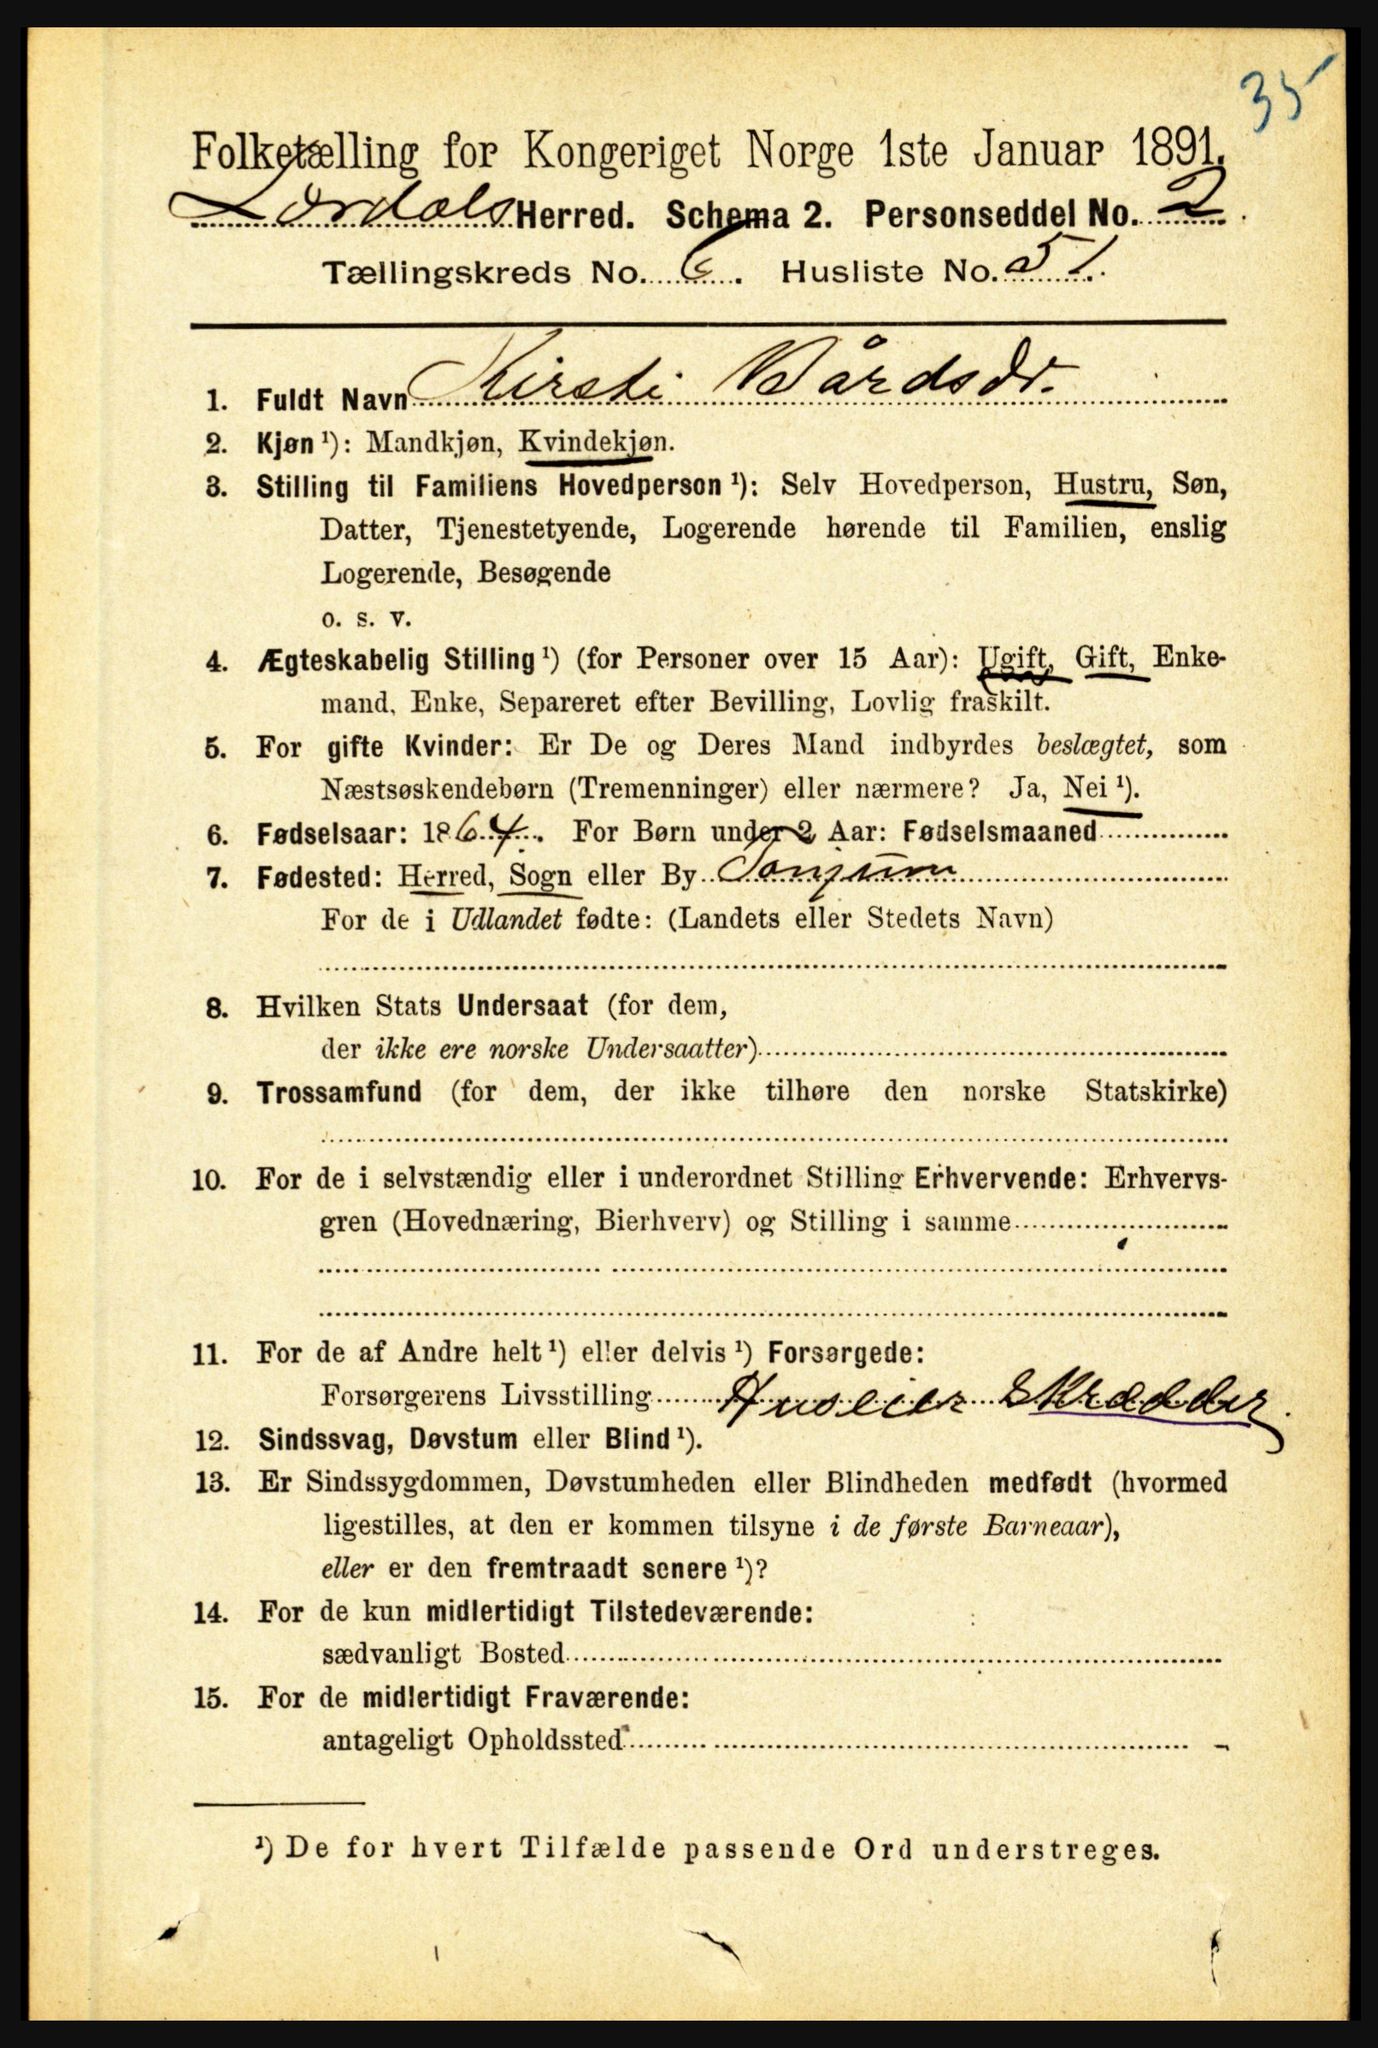 35
Folketælling for Kongeriget Norge 1ste Januar 1891.
Lærdals Herred. Schema 2. Personseddel No. 2.
Tællingskreds No. 6. Husliste No. 51.
1. Fuldt Navn Kirsti Bårdsdr.
2. Kjøn ¹): Mandkjøn, Kvindekjøn.
3. Stilling til Familiens Hovedperson ¹): Selv Hovedperson, Hustru, Søn,
Datter, Tjenestetyende, Logerende hørende til Familien, enslig
Logerende, Besøgende
o. s. v.
4. Ægteskabelig Stilling ¹) (for Personer over 15 Aar): Ugift, Gift, Enke-
mand, Enke, Separeret efter Bevilling, Lovlig fraskilt.
5. For gifte Kvinder: Er De og Deres Mand indbyrdes beslægtet, som
Næstsøskendebørn (Tremenninger) eller nærmere? Ja, Nei ¹).
6. Fødselsaar: 1864. For Børn under 2 Aar: Fødselsmaaned
7. Fødested: Herred, Sogn eller By Tønjum
For de i Udlandet fødte: (Landets eller Stedets Navn)
8. Hvilken Stats Undersaat (for dem,
der ikke ere norske Undersaatter)
9. Trossamfund (for dem, der ikke tilhøre den norske Statskirke)
10. For de i selvstændig eller i underordnet Stilling Erhvervende: Erhvervs-
gren (Hovednæring, Bierhverv) og Stilling i samme
11. For de af Andre helt ¹) eller delvis ¹) Forsørgede:
Forsørgerens Livsstilling Huseier Skrædder.
12. Sindssvag, Døvstum eller Blind ¹).
13. Er Sindssygdommen, Døvstumheden eller Blindheden medfødt (hvormed
ligestilles, at den er kommen tilsyne i de første Barneaar),
eller er den fremtraadt senere ¹)?
14. For de kun midlertidigt Tilstedeværende:
sædvanligt Bosted
15. For de midlertidigt Fraværende:
antageligt Opholdssted
¹) De for hvert Tilfælde passende Ord understreges.